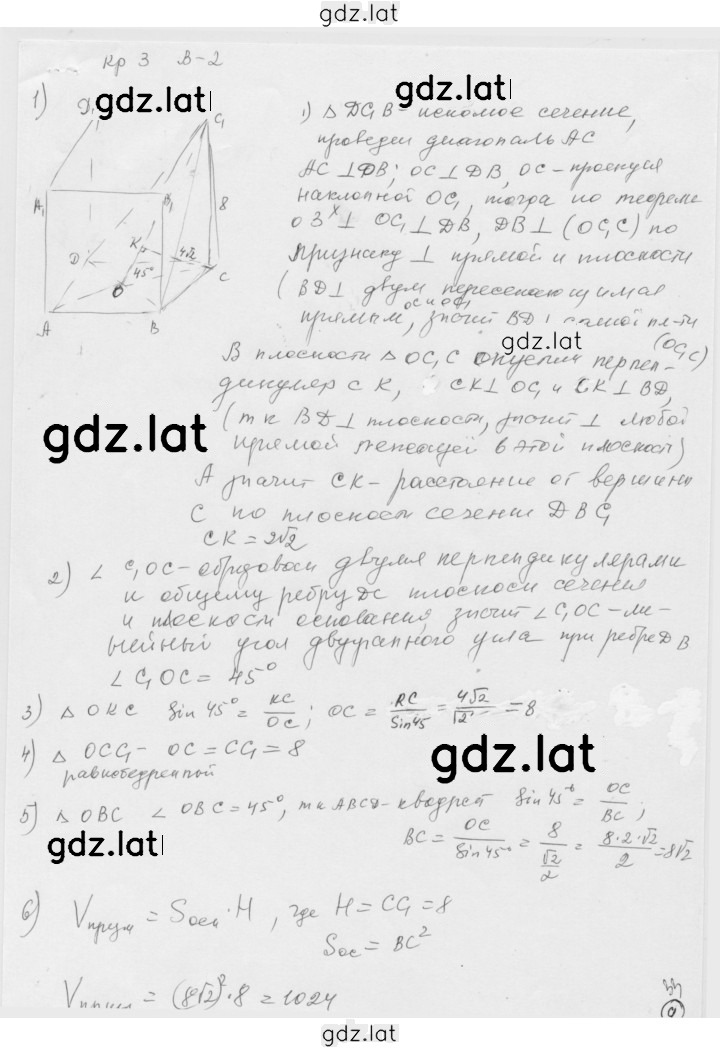 gdz.lat
кр 3 В-2
gdz.lat
1)
D₁
C₁
A₁
B₁
8
K
4√2
D
45°
C
O
A
B
1) △ DC₁B - искомое сечение,
проведем диагональ AC
AC ⊥ DB; OC ⊥ DB, OC - проекция
наклонной OC₁, тогда по теореме
о 3ˣ ⊥ OC₁ ⊥ DB, DB ⊥ (OC₁C) по
признаку ⊥ прямой и плоскости
(BD ⊥ двум пересекающимся
OC и OC₁
прямым, значит BD ⊥ самой пл-ти
(OC₁C)
gdz.lat
В плоскости △ OC₁C опустим перпен-
дикуляр CK, CK ⊥ OC₁ и CK ⊥ BD,
(т к BD ⊥ плоскости, значит ⊥ любой
прямой лежащей в этой плоскости)
gdz.lat
А значит CK - расстояние от вершины
C до плоскости сечения DBC₁
CK = 2√2
2) ∠ C₁OC - образован двумя перпендикулярами
к общему ребру плоскости сечения
и плоскости основания, значит ∠ C₁OC - ли-
нейный угол двугранного угла при ребре DB
∠ C₁OC = 45°
3) △ OKC sin 45° = KC/OC; OC = KC/Sin45 = 4√2/√2 = 8
4) △ OCC₁ - OC = CC₁ = 8
равнобедренный
gdz.lat
5) △ OBC ∠ OBC = 45°, т к ABCD - квадрат sin 45° = OC/BC;
BC = OC/Sin45° = 8/(√2/2) = 8·2·√2/2 = 8√2
gdz.lat
6) Vпризм = Sосн · H, где H = CC₁ = 8
Sос = BC²
Vпризм = (8√2)² · 8 = 1024
gdz.lat